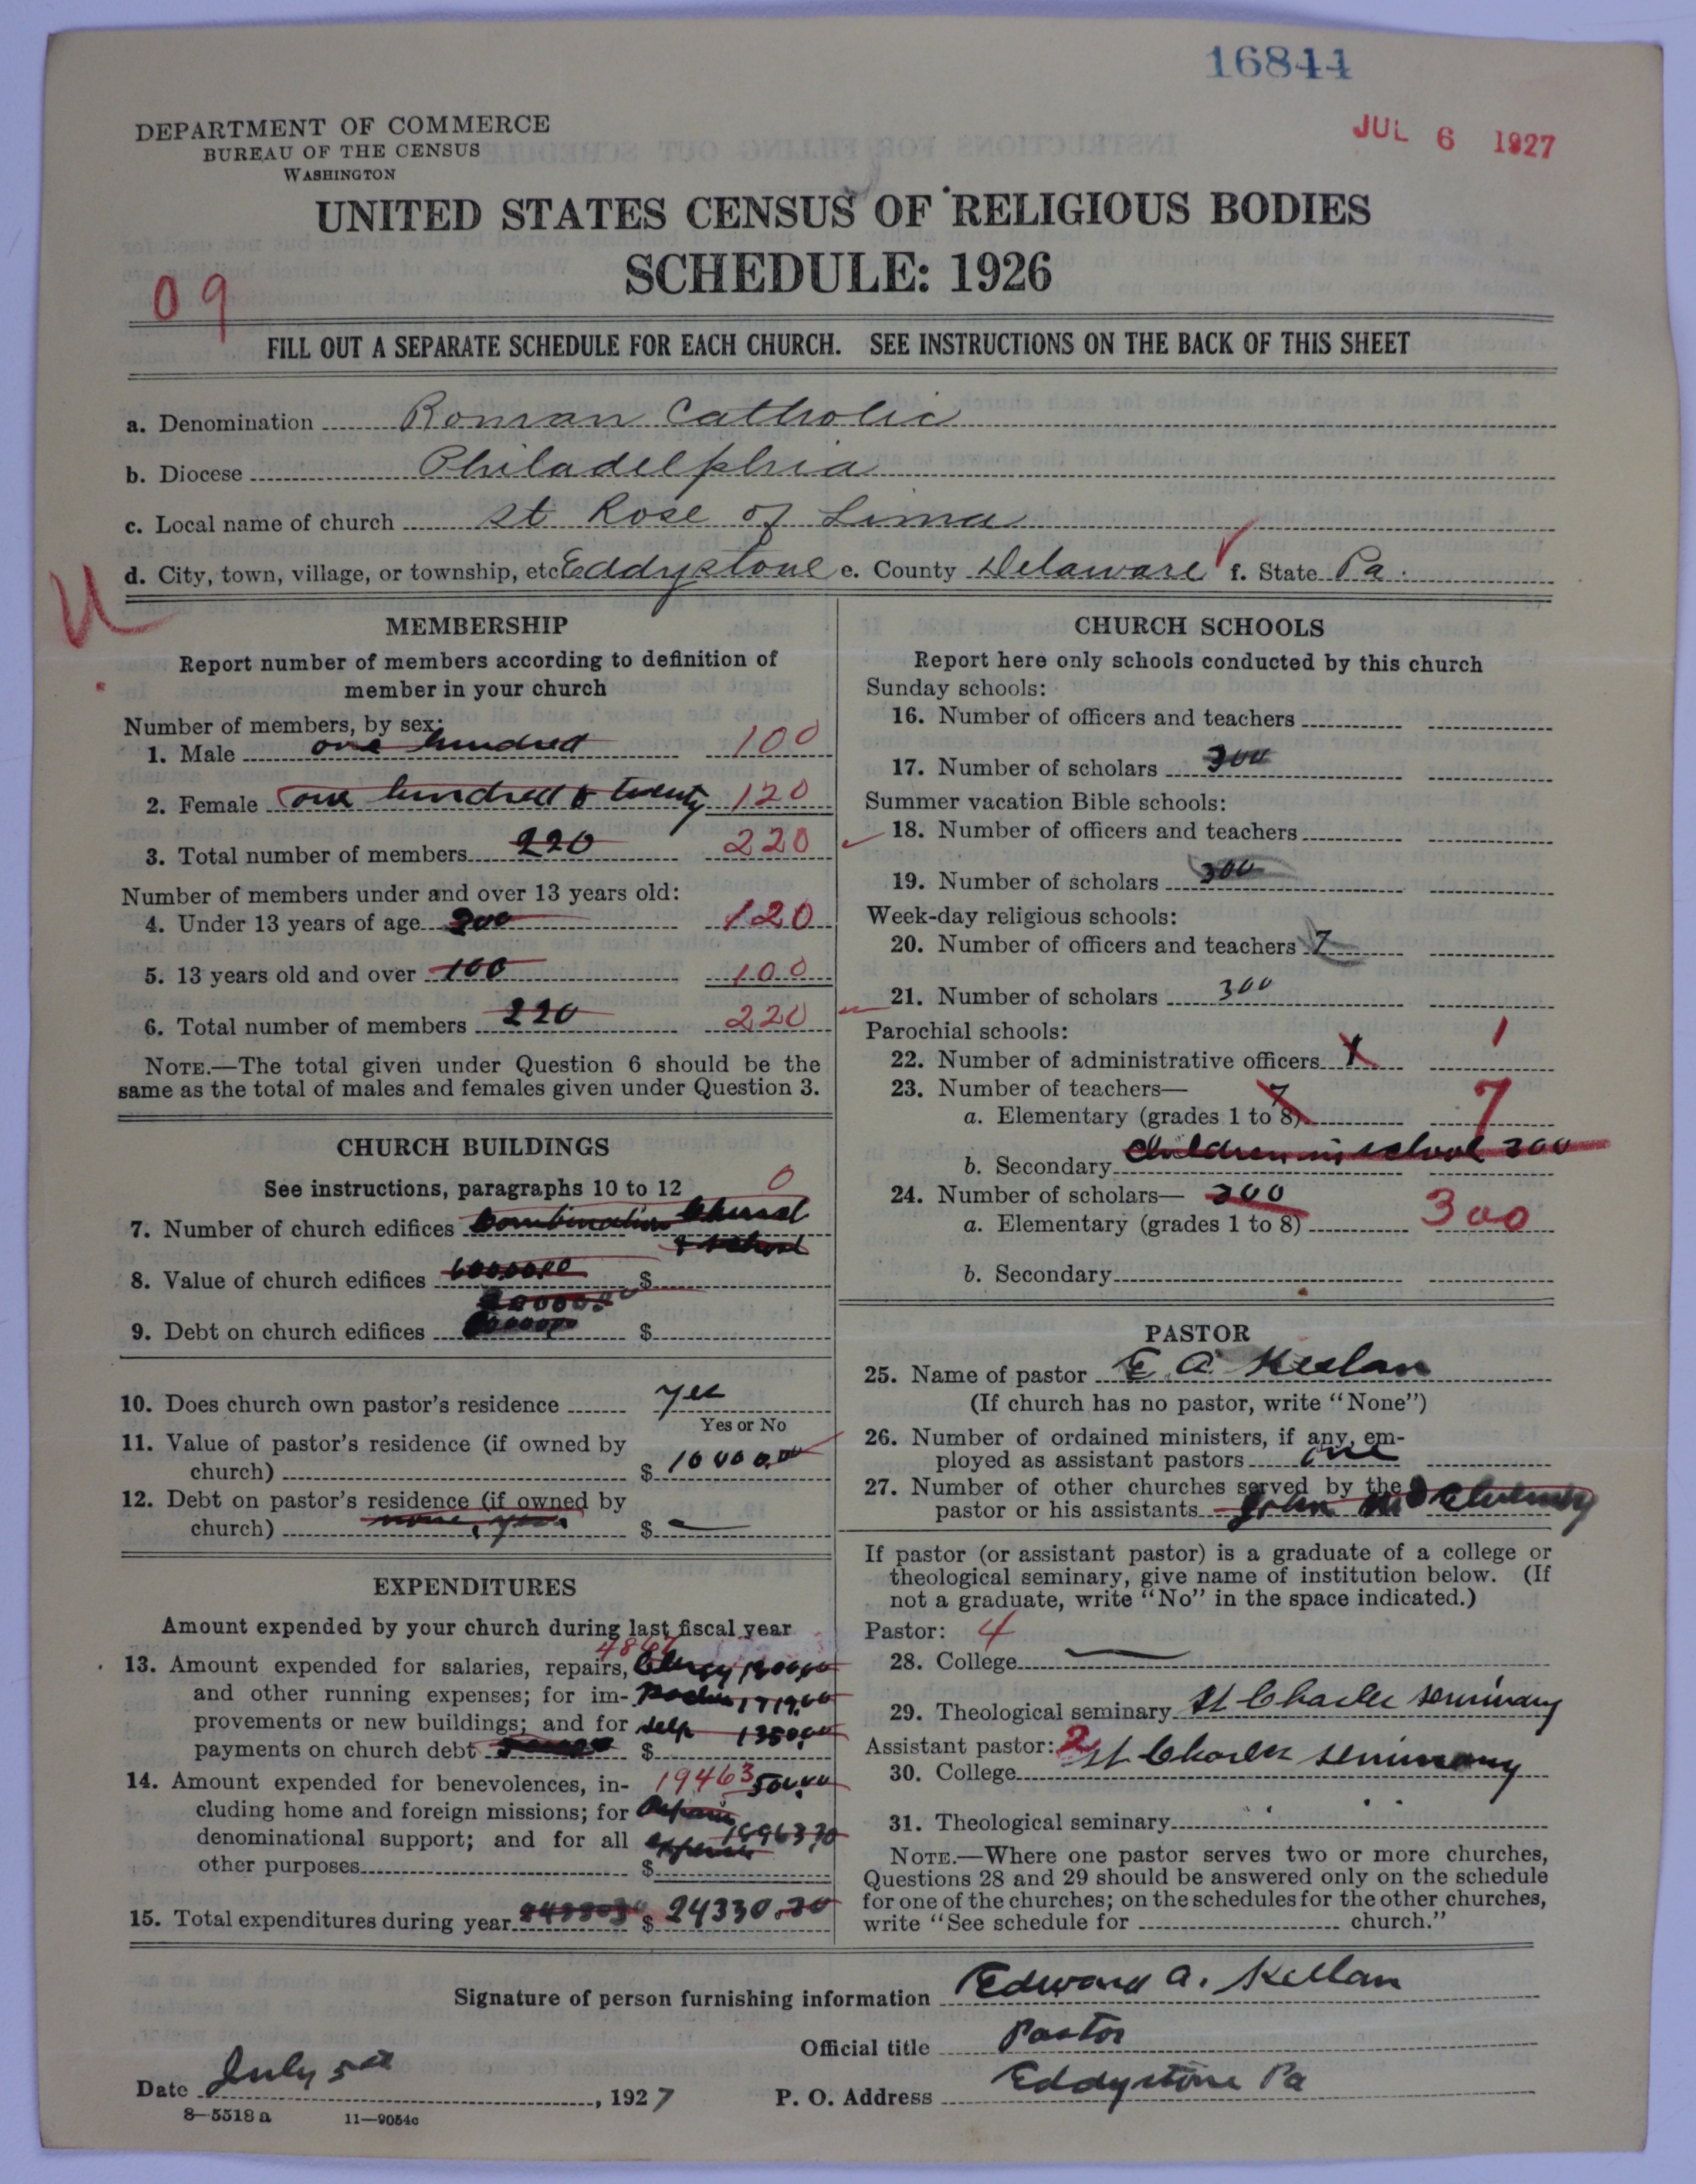 16844
JUL 6 1927
DEPARTMENT OF COMMERCE
BUREAU OF THE CENSUS
WASHINGTON
UNITED STATES CENSUS OF RELIGIOUS BODIES
SCHEDULE: 1926
09
FILL OUT A SEPARATE SCHEDULE FOR EACH CHURCH. SEE INSTRUCTIONS ON THE BACK OF THIS SHEET
a. Denomination Roman Catholic
b. Diocese Philadelphia
c. Local name of church St Rose of Lima
d. City, town, village, or township, etc Eddystone e. County Delaware f. State Pa.
U
MEMBERSHIP
Report number of members according to definition of
member in your church
Number of members, by sex:
1. Male one hundred 100
2. Female one hundred & twenty 120
3. Total number of members 220 220
Number of members under and over 13 years old:
4. Under 13 years of age 200 120
5. 13 years old and over 100 100
6. Total number of members 220 220
NOTE.—The total given under Question 6 should be the
same as the total of males and females given under Question 3.
CHURCH BUILDINGS
See instructions, paragraphs 10 to 12 0
7. Number of church edifices Combination Church
& school
8. Value of church edifices $
9. Debt on church edifices $
10. Does church own pastor's residence yes
Yes or No
11. Value of pastor's residence (if owned by
church) $ 10000.00
12. Debt on pastor's residence (if owned by
church) none $
EXPENDITURES
Amount expended by your church during last fiscal year
4867
13. Amount expended for salaries, repairs, Clergy
and other running expenses; for im-
provements or new buildings; and for help 1350.00
payments on church debt $
14. Amount expended for benevolences, in- 19463 500.00
cluding home and foreign missions; for Repairs
denominational support; and for all expenses
other purposes $
15. Total expenditures during year $ 24330.30
CHURCH SCHOOLS
Report here only schools conducted by this church
Sunday schools:
16. Number of officers and teachers
17. Number of scholars 300
Summer vacation Bible schools:
18. Number of officers and teachers
19. Number of scholars 300
Week-day religious schools:
20. Number of officers and teachers 7
21. Number of scholars 300
Parochial schools:
22. Number of administrative officers 1 1
23. Number of teachers— 7
a. Elementary (grades 1 to 8) 7
b. Secondary Children in school 300
24. Number of scholars— 300
a. Elementary (grades 1 to 8) 300
b. Secondary
PASTOR
25. Name of pastor E A Keelan
(If church has no pastor, write "None")
26. Number of ordained ministers, if any, em-
ployed as assistant pastors one
27. Number of other churches served by the
pastor or his assistants John
If pastor (or assistant pastor) is a graduate of a college or
theological seminary, give name of institution below. (If
not a graduate, write "No" in the space indicated.)
Pastor: 4
28. College
29. Theological seminary St Charles seminary
Assistant pastor: 2
30. College St Charles seminary
31. Theological seminary " "
NOTE.—Where one pastor serves two or more churches,
Questions 28 and 29 should be answered only on the schedule
for one of the churches; on the schedules for the other churches,
write "See schedule for church."
Signature of person furnishing information Edward A. Keelan
Official title Pastor
Date July 5th, 1927 P. O. Address Eddystone Pa
8-5518a 11-9054c